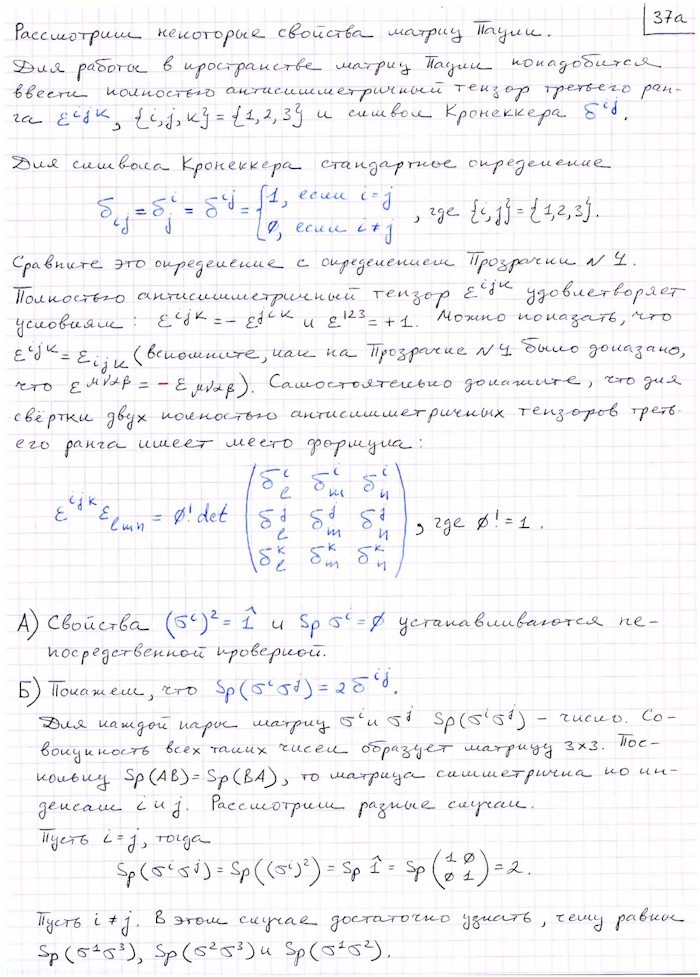 37a
Рассмотрим некоторые свойства матриц Паули.
Для работы в пространстве матриц Паули понадобится
ввести полностью антисимметричный тензор третьего ран-
га ε^{ijk}, {i,j,k}={1,2,3} и символ Кронеккера δ^{ij}.
Для символа Кронеккера стандартное определение
δ_{ij} = δ^i_j = δ^{ij} = {1, если i=j; 0, если i≠j, где {i,j}={1,2,3}.
Сравните это определение с определением Прозрачки №1.
Полностью антисимметричный тензор ε^{ijk} удовлетворяет
условиям: ε^{ijk} = -ε^{jik} и ε^{123} = +1. Можно показать, что
ε^{ijk} = ε_{ijk} (вспомните, как на Прозрачке №1 было доказано,
что ε^{μναβ} = -ε_{μναβ}). Самостоятельно докажите, что для
свёртки двух полностью антисимметричных тензоров треть-
его ранга имеет место формула:
ε^{ijk} ε_{lmn} = 0! det (δ^i_l δ^i_m δ^i_n; δ^j_l δ^j_m δ^j_n; δ^k_l δ^k_m δ^k_n), где 0! = 1.
А) Свойства (σ^i)^2 = 1̂ и Sp σ^i = 0 устанавливаются не-
посредственной проверкой.
Б) Покажем, что Sp(σ^i σ^j) = 2δ^{ij}.
Для каждой пары матриц σ^i и σ^j Sp(σ^i σ^j) – число. Со-
вокупность всех таких чисел образует матрицу 3×3. Пос-
кольку Sp(AB) = Sp(BA), то матрица симметрична по ин-
дексам i и j. Рассмотрим разные случаи.
Пусть i=j, тогда
Sp(σ^i σ^j) = Sp((σ^i)^2) = Sp 1̂ = Sp (1 0; 0 1) = 2.
Пусть i≠j. В этом случае достаточно узнать, чему равны
Sp(σ^1 σ^3), Sp(σ^2 σ^3) и Sp(σ^1 σ^2).